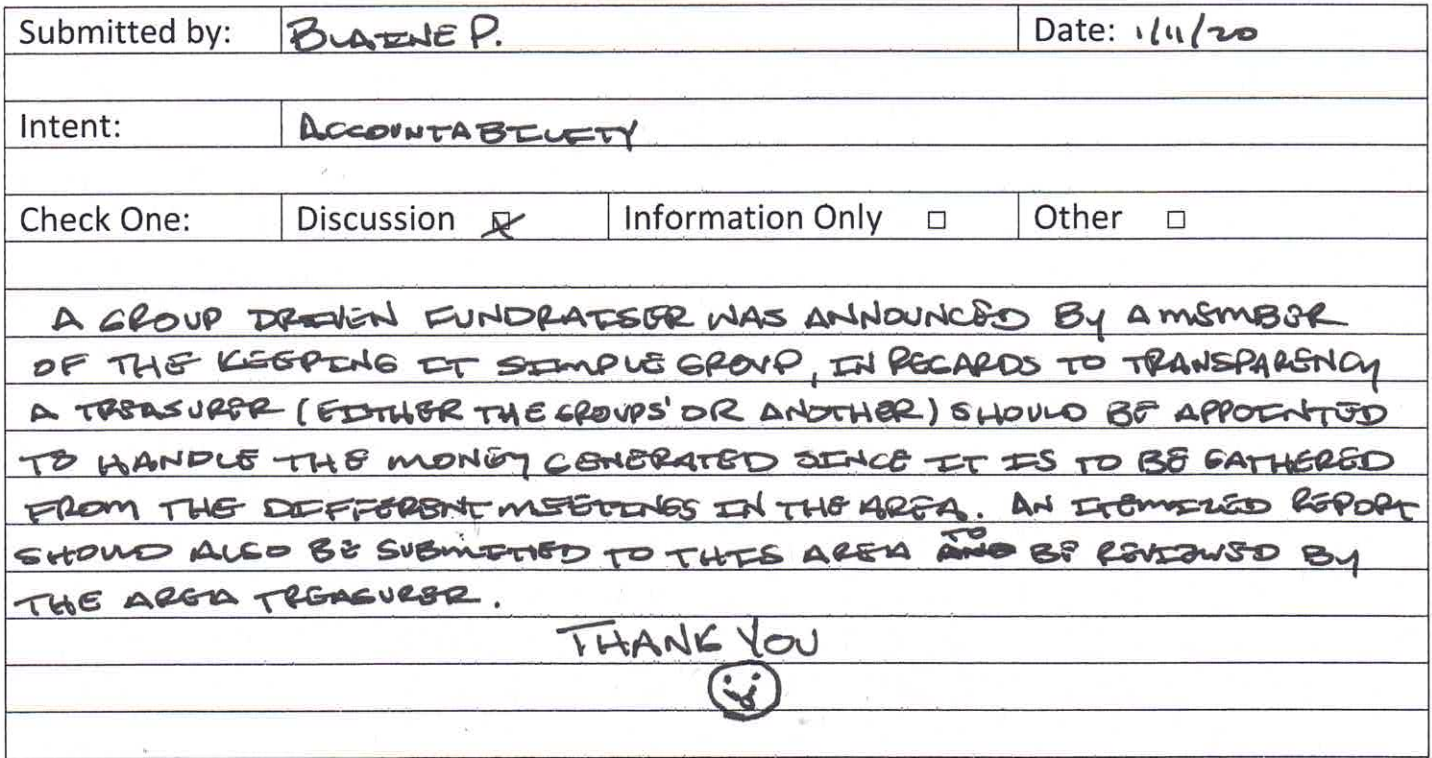 Submitted by: BLAINE P. Date: 1/11/20
Intent: ACCOUNTABILITY
Check One: Discussion ☒ Information Only ☐ Other ☐
A GROUP DRIVEN FUNDRAISER WAS ANNOUNCED By A MEMBER
OF THE KEEPING IT SIMPLE GROUP, IN REGARDS TO TRANSPARENCY
A TREASURER (EITHER THE GROUPS' OR ANOTHER) SHOULD BE APPOINTED
TO HANDLE THE MONEY GENERATED SINCE IT IS TO BE GATHERED
FROM THE DIFFERENT MEETINGS IN THE AREA. AN ITEMIZED REPORT
SHOULD ALSO BE SUBMITTED TO THIS AREA TO BE REVIEWED By
THE AREA TREASURER.
THANK YOU